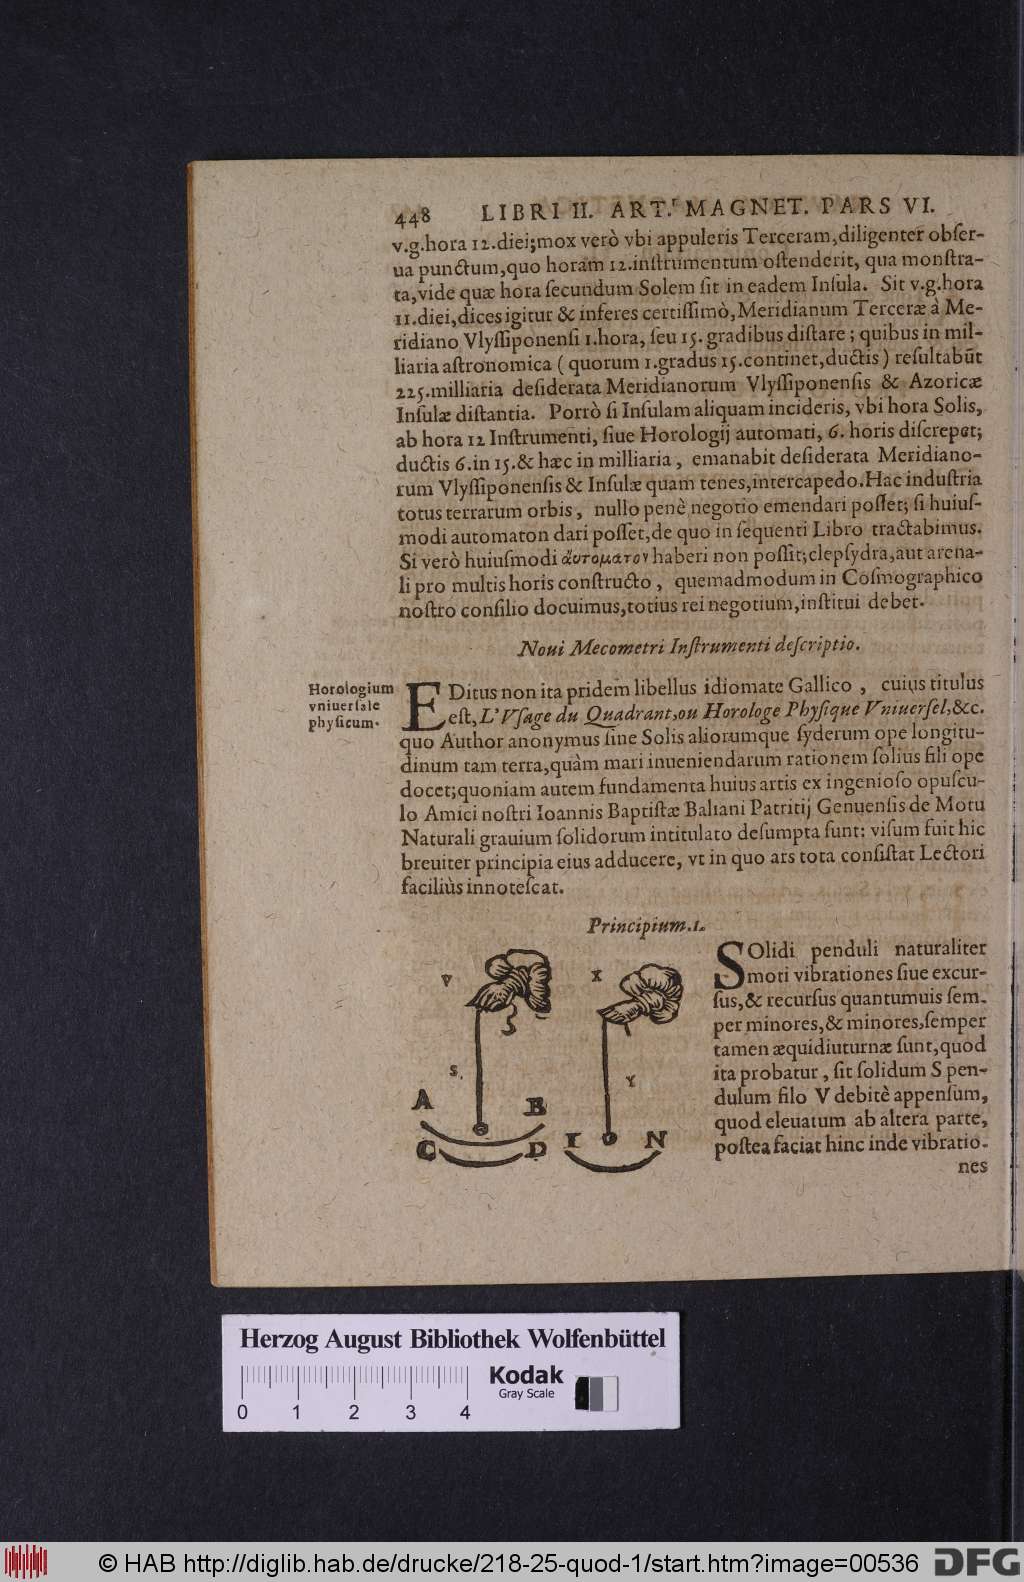 448 LIBRI II. ART. MAGNET. PARS VI.
v.g.hora 12.diei;mox verò vbi appuleris Terceram,diligenter obſer-
ua punctum,quo horam 12.inſtrumentum oſtenderit, qua monſtra-
ta,vide quæ hora ſecundum Solem ſit in eadem Inſula. Sit v.g.hora
11.diei,dices igitur & inferes certiſſimò,Meridianum Terceræ à Me-
ridiano Vlyſſiponenſi 1.hora, ſeu 15. gradibus diſtare ; quibus in mil-
liaria aſtronomica ( quorum 1.gradus 15.continet,ductis ) reſultabũt
225.milliaria deſiderata Meridianorum Vlyſſiponenſis & Azoricæ
Inſulæ diſtantia. Porrò ſi Inſulam aliquam incideris, vbi hora Solis,
ab hora 12 Inſtrumenti, ſiue Horologij automati, 6. horis diſcrepet;
ductis 6.in 15.& hæc in milliaria , emanabit deſiderata Meridiano-
rum Vlyſſiponenſis & Inſulæ quam tenes,intercapedo.Hac induſtria
totus terrarum orbis , nullo penè negotio emendari poſſet; ſi huiuſ-
modi automaton dari poſſet,de quo in ſequenti Libro tractabimus.
Si verò huiuſmodi ἀυτοματον haberi non poſſit;clepſydra,aut arena-
li pro multis horis conſtructo , quemadmodum in Coſmographico
noſtro conſilio docuimus,totius rei negotium,inſtitui debet.
Noui Mecometri Inſtrumenti deſcriptio.
Horologium
vniuerſale
phyſicum.
EDitus non ita pridem libellus idiomate Gallico , cuius titulus
eſt, L'Vſage du Quadrant,ou Horologe Phyſique Vniuerſel,&c.
quo Author anonymus ſine Solis aliorumque ſyderum ope longitu-
dinum tam terra,quàm mari inueniendarum rationem ſolius fili ope
docet;quoniam autem fundamenta huius artis ex ingenioſo opuſcu-
lo Amici noſtri Ioannis Baptiſtæ Baliani Patritij Genuenſis de Motu
Naturali grauium ſolidorum intitulato deſumpta ſunt: viſum fuit hic
breuiter principia eius adducere, vt in quo ars tota conſiſtat Lectori
faciliùs innoteſcat.
Principium.1.
SOlidi penduli naturaliter
moti vibrationes ſiue excur-
ſus,& recurſus quantumuis ſem-
per minores,& minores,ſemper
tamen æquidiuturnæ ſunt,quod
ita probatur , ſit ſolidum S pen-
dulum filo V debitè appenſum,
quod eleuatum ab altera parte,
poſtea faciat hinc inde vibratio-
nes
V X
S. Y
A B
C D I N
Herzog August Bibliothek Wolfenbüttel
Kodak
Gray Scale
0 1 2 3 4
© HAB http://diglib.hab.de/drucke/218-25-quod-1/start.htm?image=00536
DFG